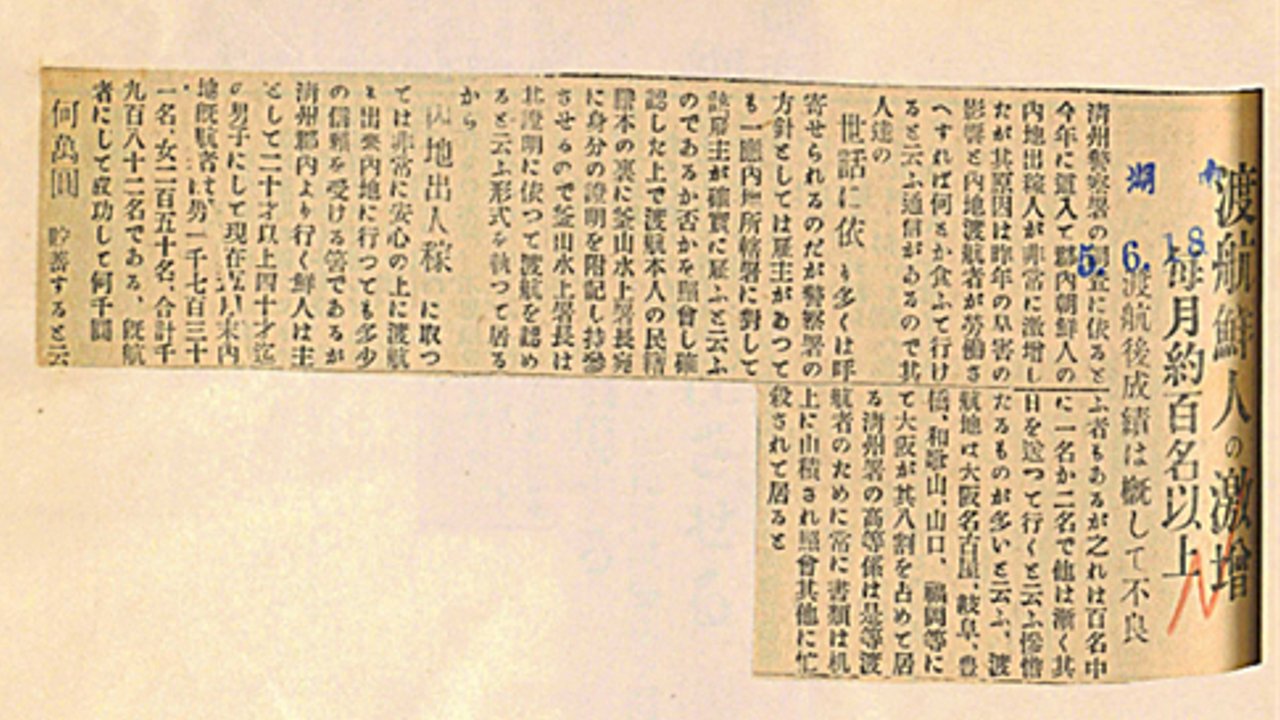 渡航鮮人の激增
每月約百名以上
渡航後成績は概して不良
湖 南
5. 6. 18
淸州警察署の調査に依ると
今年に這入て郡內朝鮮人の
內地出稼人が非常に激增し
たが其原因は昨年の旱害の
影響と內地渡航者が勞働さ
へすれば何とか食ふて行け
ると云ふ通信があるので其
人達の
世話に依 り多くは呼
寄せられるのだが警察署の
方針としては雇主があつて
も一應內地所轄署に對して
該雇主が確實に雇ふと云ふ
のであるか否かを照會し確
認した上で渡航本人の民籍
謄本の裏に釜山水上署長宛
に身分の證明を附記し持參
させるので釜山水上署長は
其證明に依つて渡航を認め
ると云ふ形式を執つて居る
から
內地出人稼 に取つ
ては非常に安心の上に渡航
も出來內地に行つても多少
の信賴を受ける筈であるが
淸州郡內より行く鮮人は主
として二十才以上四十才迄
の男子にして現在 五月末內
地旣航者は 男一千七百三十
一名、女二百五十名、合計千
九百八十二名である、旣航
者にして成功して何千圓
何萬圓 貯蓄すると云
ふ者もあるが之れは百名中
に一名か二名で他は漸く其
日を送つて行くと云ふ慘憺
たるものが多いと云ふ、渡
航地は大阪名古屋、岐阜、豊
橋、和歌山、山口、福岡等に
て大阪が其八割を占めて居
る淸州署の高等係は是等渡
航者のために常に書類は机
上に山積され照會其他に忙
殺されて居ると